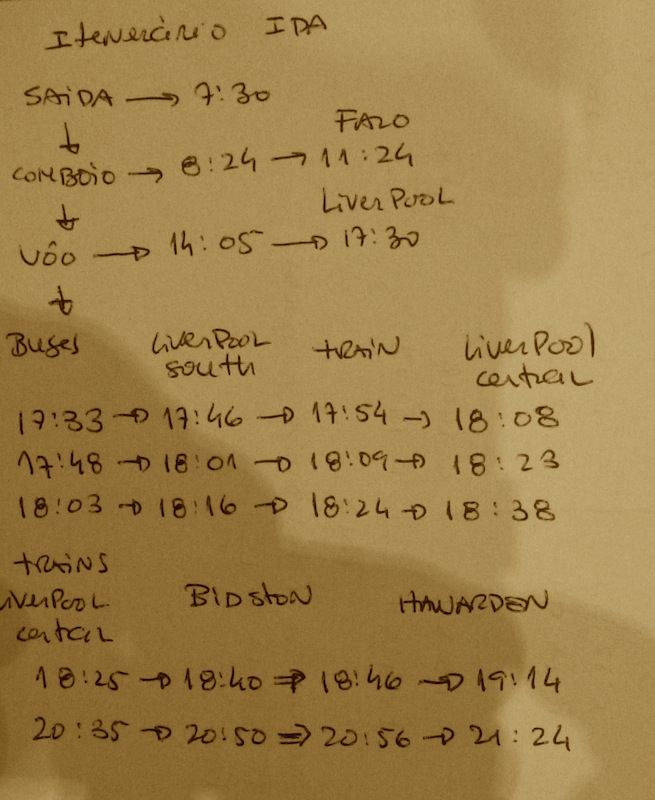 Itenerário IDA
SAIDA → 7:30
↓
FARO
COMBOIO → 8:24 → 11:24
↓
LIVERPOOL
VÔO → 14:05 → 17:30
↓
Buses LIVERPOOL south TRAIN LIVERPOOL central
17:33 → 17:46 → 17:54 → 18:08
17:48 → 18:01 → 18:09 → 18:23
18:03 → 18:16 → 18:24 → 18:38
TRAINS
LIVERPOOL central BIDSTON HAWARDEN
18:25 → 18:40 ⇒ 18:46 → 19:14
20:35 → 20:50 ⇒ 20:56 → 21:24